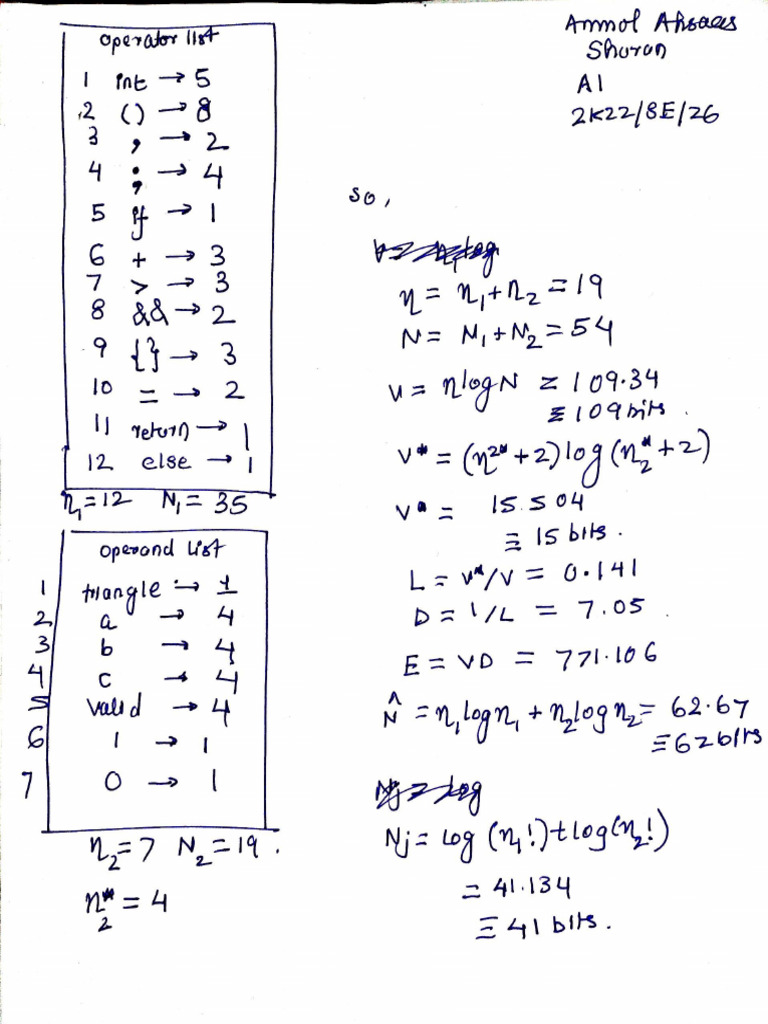 operator list
1 int → 5
2 () → 8
3 , → 2
4 ; → 4
5 if → 1
6 + → 3
7 > → 3
8 && → 2
9 {} → 3
10 = → 2
11 return → 1
12 else → 1
η₁=12 N₁= 35
operand list
1 triangle → 1
2 a → 4
3 b → 4
4 c → 4
5 valid → 4
6 1 → 1
7 0 → 1
η₂=7 N₂=19.
η₂* = 4
Anmol
Sharon
A1
2K22/SE/26
so,
η = η₁+η₂ = 19
N = N₁+N₂ = 54
V = η log N = 109.34
≡ 109 bits.
V* = (η²* + 2) log (η₂* + 2)
V* = 15.504
≡ 15 bits.
L = V*/V = 0.141
D = 1/L = 7.05
E = VD = 771.106
N̂ = η₁logη₁ + η₂logη₂ = 62.67
≡ 62 bits
Nj = log (η₁!) + log(η₂!)
= 41.134
≡ 41 bits.